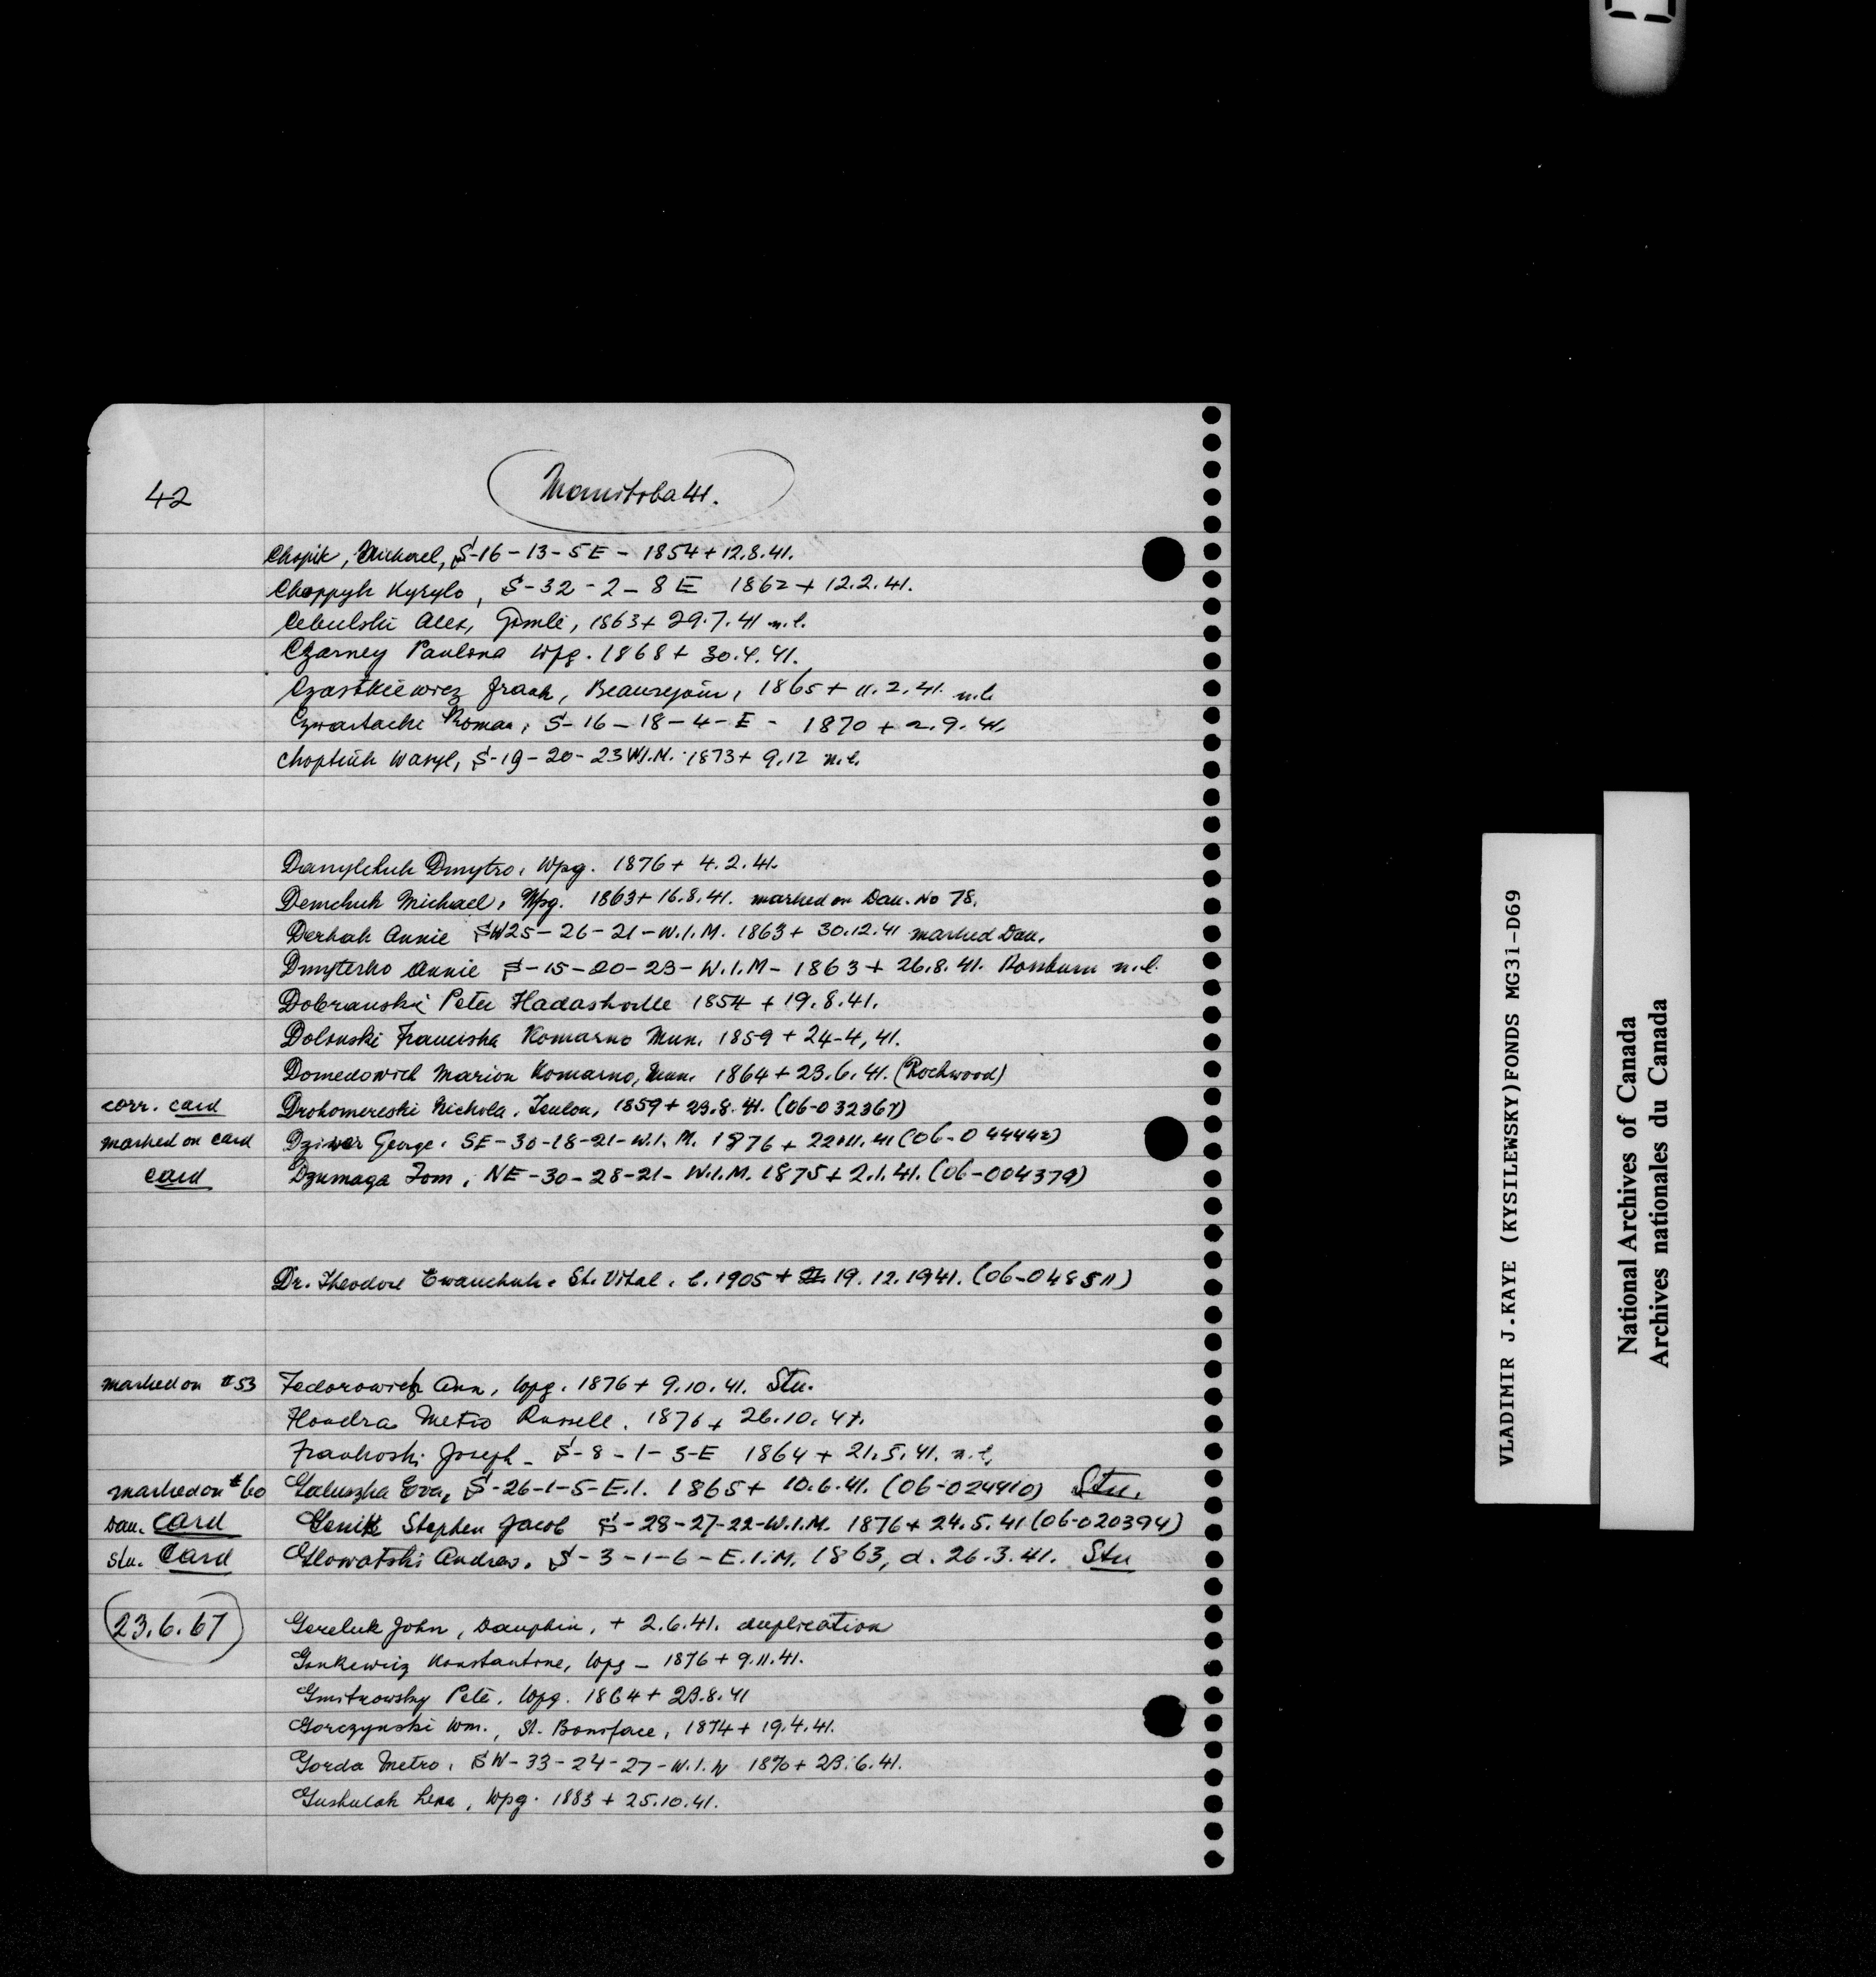 42
Manitoba 41.
Chopik, Michael, S-16-13-5E - 1854 + 12.8.41.
Choppyk Kyrylo, S-32-2-8E 1862 + 12.2.41.
Cebulski Alex, Gimli, 1863 + 29.7.41 n.l.
Czarney Paulina Wpg. 1868 + 30.4.41.
Czastkiewicz Frank, Beausejour, 1865 + 11.2.41. n.l.
Roman, S-16-18-4-E - 1870 + 2.9.41.
Choptiuk Wasyl, S-19-20-23 W.I.M. 1873 + 9.12 n.l.
Danylchuk Dmytro, Wpg. 1876 + 4.2.41.
Demchuk Michael, Wpg. 1863 + 16.8.41. marked on Dau. No 78.
Derkah Annie SW25-26-21-W.I.M. 1863 + 30.12.41 marked Dau.
Dmyterko Annie S-15-20-23-W.I.M- 1863 + 26.8.41. Rossburn n.l.
Dobranski Peter Hadashville 1854 + 19.8.41.
Dolinski Franciska Komarno Mun. 1859 + 24-4,41.
Domedowich Marion Komarno, Mun. 1864 + 23.6.41. (Rockwood)
corr. card Drohomereski Nichola, Teulon, 1859 + 23.8.41. (06-032367)
marked on card Dziwer George. SE-30-18-21-W.I.M. 1876 + 22.11.41 (06-044442)
card Dzumaga Tom, NE-30-28-21- W.I.M. 1875 + 2.1.41. (06-004379)
Dr. Theodore Ewanchuk. St. Vital. b. 1905 + 19.12.1941. (06-048511)
marked on #53 Fedorowich Ann, Wpg. 1876 + 9.10.41. Stu.
Flondra Metro Russell. 1876 + 26.10.41.
Frankoski Joseph - S-8-1-3-E 1864 + 21.5.41. n.l.
marked on #60 Galuszka Eva, S-26-1-5-E.I. 1865 + 10.6.41. (06-024410) Stu.
Dau. card Genik Stephen Jacob S-28-27-22-W.I.M. 1876 + 24.5.41 (06-020394)
Stu. Card Glowatski Andrew. S-3-1-6-E.I.M. 1863, d. 26.3.41. Stu
23.6.67 Gereluk John, Dauphin, + 2.6.41. duplication
Ginkewicz Konstantine, Wpg - 1876 + 9.11.41.
Gmitrowsky Pete. Wpg. 1864 + 23.8.41
Gorczynski Wm., St. Boniface, 1874 + 19.4.41.
Gorda Metro. SW-33-24-27-W.I.M 1870 + 23.6.41.
Gushulak Lena, Wpg. 1883 + 25.10.41.
VLADIMIR J.KAYE (KYSILEWSKY)FONDS MG31-D69
National Archives of Canada
Archives nationales du Canada